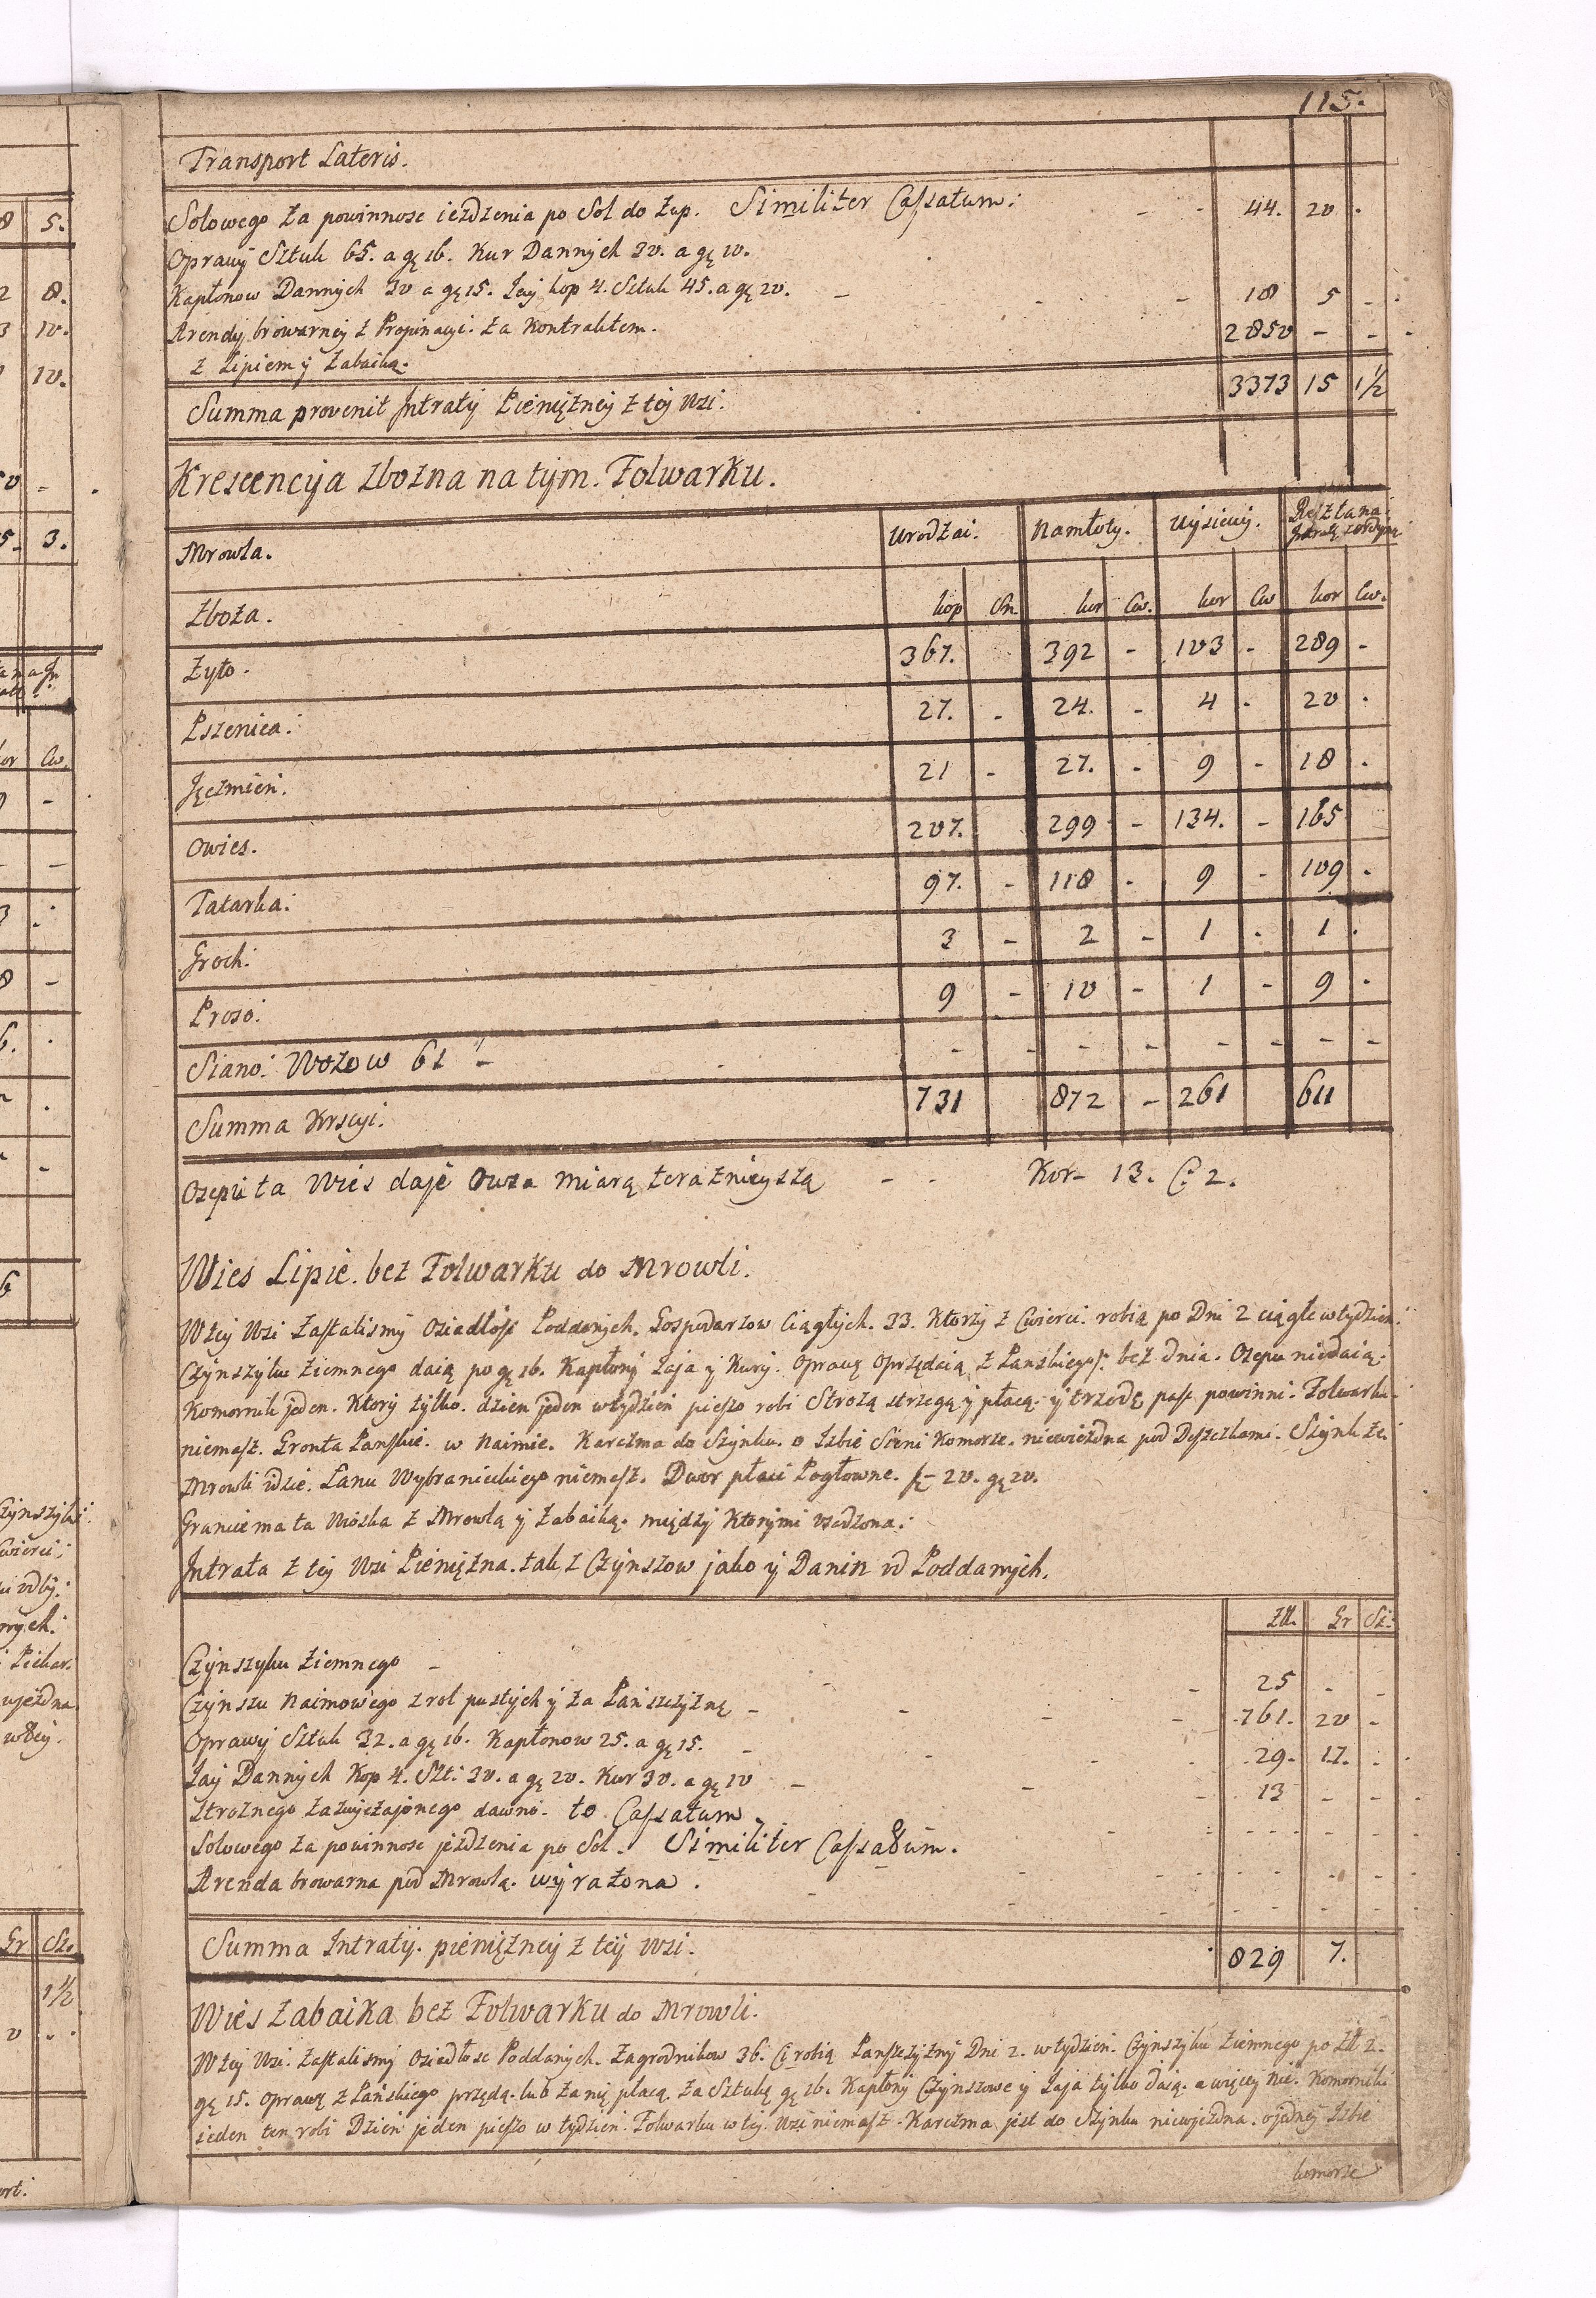 115.
Transport Lateris.
Solowego za powinnosc iezdzenia po Sol do Zup. Similiter Cassatum: - - 44. 20 .
Oprawy Sztuk 65. a gę 16. Kur Dannych 30. a gę 10.
Kapłonow Dannych 30 a gę 15. Jay kop 4. Sztuk 45. a gę 20. - - - 18 5 -
Arendy browarney z Propinacyi. za Kontraktem. 2850 - -
z Lipiem y Zabaiką.
Summa provenit Intraty Pieniężney z tey Wsi. 3373 15 1½
Krescencyja zbozna na tym. Folwarku.
Mrowla. Urodzai. Namłoty. Wysiewy. Reszta na
Intratę
Zboza. kop Sn. kor Cw. kor Cw kor Cw.
Zyto. 367. 392 - 103 - 289 -
Pszenica. 27. - 24. - 4 - 20 .
Jęczmien. 21 - 27. - 9 - 18 .
Owies. 207. 299 - 134. - 165
Tatarka. 97. - 118 - 9 - 109 .
Groch. 3 - 2 - 1 . 1 .
Proso. 9 - 10 - 1 - 9 .
Siano: Wozow 61 - - - - - - - - -
Summa Krscyi. 731 872 - 261 611
Osepu ta Wies daje Owsa miarą teraznieyszą - - Kor- 13. C: 2.
Wies Lipie. bez Folwarku do Mrowli.
W tey Wsi zastalismy osiadłosc Poddanych. Gospodarzow Ciągłych. 33. Ktorzy z Cwierci. robią po Dni 2 ciągłe w tydzien.
Czynszyku ziemnego daią po gę 16. Kapłony Jaja y Kury. Oprawę Oprzędaią z Panskiego. bez dnia. Osepu niedaią.
Komornik jeden. Ktory tylko. dzien jeden w tydzien pieszo robi Strozą strzegą y płacą. y trzodę pasc powinni. Folwarku.
niemasz. Gronta Panskie. w Naimie. Karczma do Szynku. o Izbie Sieni Komorze. niewiezdna pod Deszczkami. Szynk ze.
Mrowli idzie. Lanu Wybranieckiego niemasz. Dwor płaci Pogłowne. f- 20. gę 20.
Granice ma ta Wioska z Mrowlą y Zabaiką. między Ktorymi osadzona.
Intrata z tey Wsi Pieniężna. tak z Czynszow jako y Danin od Poddanych.
Zll. Gr Sz:
Czynszyku ziemnego - - - 25 - -
Czynszu Naimowego z rol pustych y za Panszczyznę - - - - 761. 20 -
Oprawy Sztuk 32. a gę 16. Kapłonow 25. a gę 15. - - - 29. 17. .
Jay Dannych Kop 4. Szt: 30. a gę 20. Kur 30. a gę 10 - - - 13 - -
Stroznego zazwyczajonego dawno. to Cassatum - - - - -
Solowego za powinnosc jezdzenia po Sol. Similiter Cassatum. - - - - -
Arenda browarna pod Mrowlą. wyrazona. - - - - -
Summa Intraty. pieniężney z tey Wsi. 829 7.
Wies Zabaika bez Folwarku do Mrowli.
W tey Wsi. Zastalismy Osiadłosc Poddanych. Zagrodnikow 36. Ci robią Panszczyzny Dni 2. w tydzien. Czynszyku ziemnego po Zll 2.
gę 15. Oprawę z Pańskiego przędą. lub za nię płacą. za Sztukę gę 16. Kapłony Czynszowe y Jaja tylko daią. a więcey nic. Komornik
ieden ten robi Dzień jeden pieszo w tydzien. Folwarku w tey. Wsi niemasz. Karczma jest do Szynku niewjezdna. o jedney Izbie
komorze